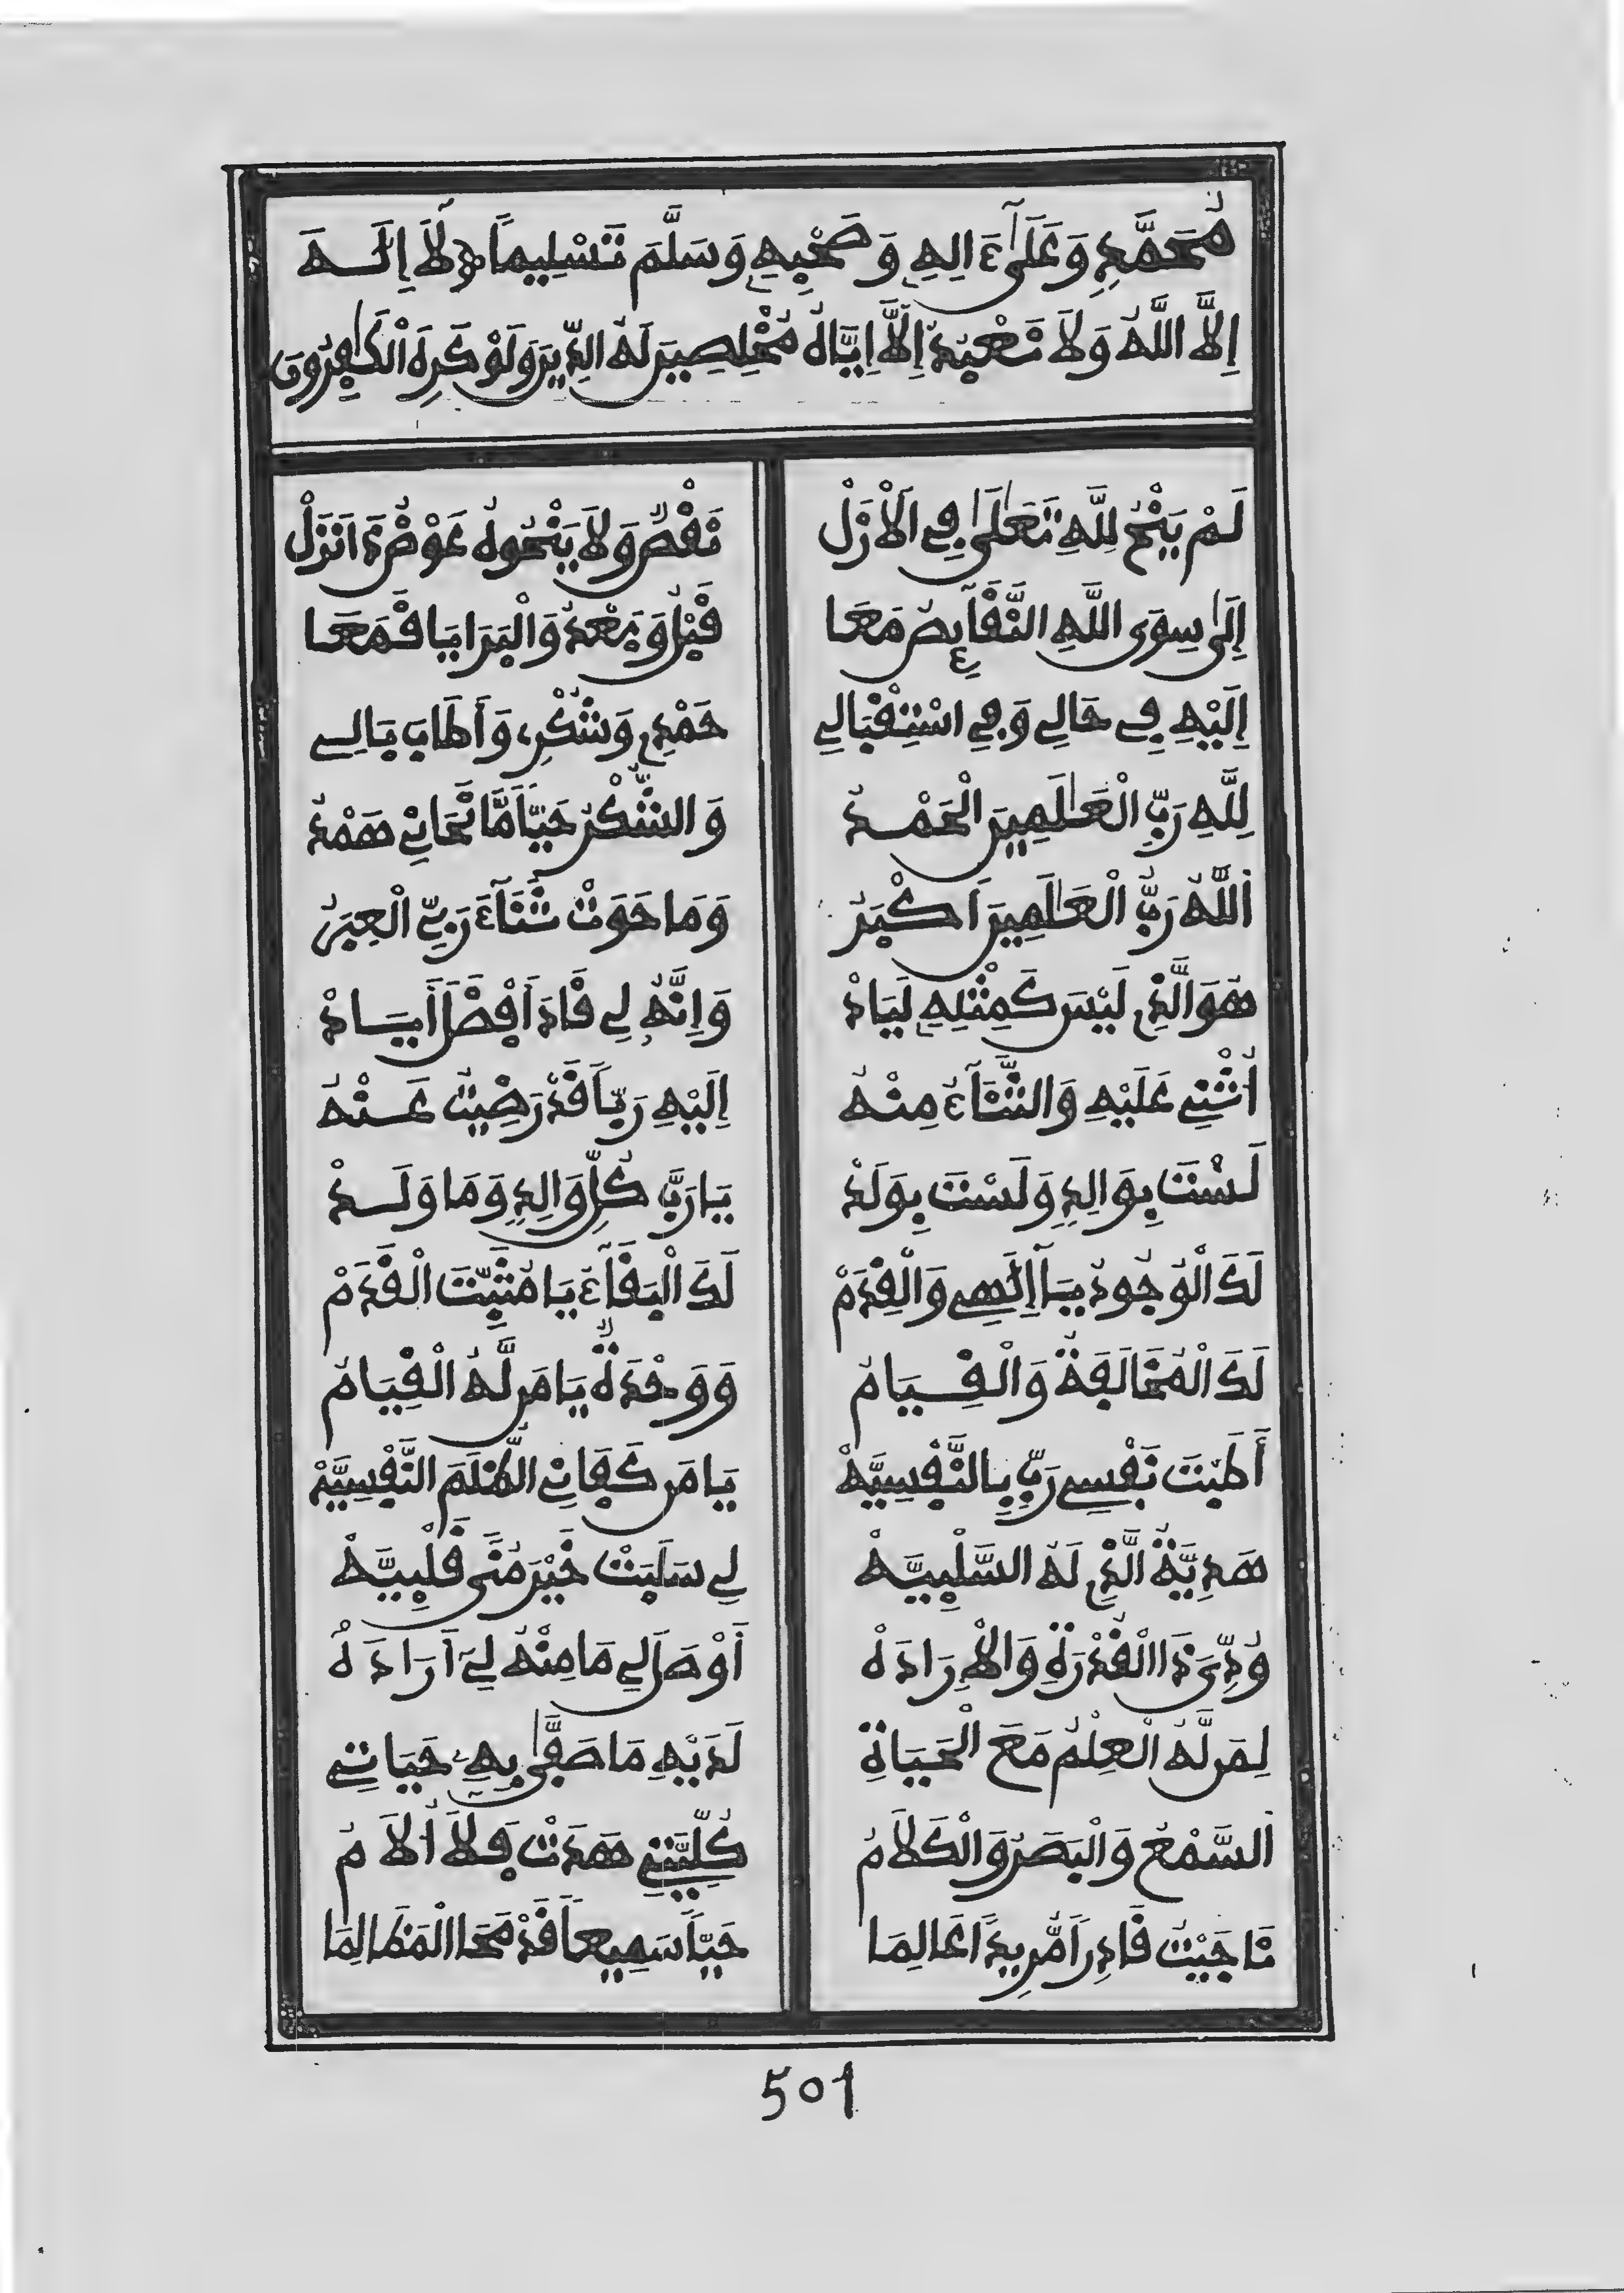 مُحَمَّدٍ وَعَلَىٰٓ ءَالِهِ وَصَحْبِهِ وَسَلَّمَ تَسْلِيماً لَآ إِلَـٰهَ
إِلَّا اللَّهُ وَلَا نَعْبُدُ إِلَّآ إِيَّاهُ مُخْلِصِينَ لَهُ الدِّينَ وَلَوْ كَرِهَ الْكَـٰفِرُونَ
لَمْ يَنْحُ لِلَّهِ تَعَـٰلَىٰ فِي الْأَزَلْ نَقْصٌ وَلَا يَنْحُوهُ عَوْضُ مَا نَزَلْ
إِلَىٰ سِوَى اللَّهِ النَّقَآئِصُ مَعَا قَبْلُ وَبَعْدُ وَالْبَرَايَا قَمَعَا
إِلَيْهِ فِي حَالِي وَفِي اسْتِقْبَالِي حَمْدِي وَشُكْرِي وَأَطَابَ بَالِي
لِلَّهِ رَبِّ الْعَـٰلَمِينَ الْحَمْدُ وَالشُّكْرُ حَيّاً مَّا نَحَانِي هَمْدُ
اَللَّهُ رَبُّ الْعَـٰلَمِينَ أَكْبَرُ وَمَا حَوَتْ ثَنَآءَ رَبِّي الْعِبَرُ
هُوَ الَّذِي لَيْسَ كَمِثْلِهِ لَيَاذْ وَإِنَّهُ لِي قَادَ أَفْضَلَ أَيَـاذْ
أُثْنِي عَلَيْهِ وَالثَّنَآءُ مِنْهُ إِلَيْهِ رَبّاً قَدْ رَضِيتُ عَـنْهُ
لَسْتَ بِوَالِدٍ وَلَسْتَ بِوَلَدْ يَا رَبَّ كُلِّ وَالِدٍ وَمَا وَلَـدْ
لَكَ الْوُجُودُ يَآ إِلَـٰهِي وَالْقِدَمْ لَكَ الْبَقَآءُ يَا مُثَبِّتَ الْقَدَمْ
لَكَ الْمُخَالَفَةُ وَالْقِـيَامُ وَوَحْدَةٌ يَا مَن لَّهُ الْقِيَامُ
أَطَبْتَ نَفْسِي رَبِّ بِالنَّفْسِيَّهْ يَا مَن كَفَانِي الظُّلَمَ النَّفْسِيَّهْ
هَدِيَّةُ الَّذِي لَهُ السَّلْبِيَّهْ لِي سَلَبَتْ خَيْرَ مُنًى قَلْبِيَّهْ
وُدِّيَ ذَا الْقُدْرَةِ وَالْإِرَادَهْ أَوْصَلَ لِي مَا مِنْهُ لِيَ أَرَادَهُ
لِمَن لَّهُ الْعِلْمُ مَعَ الْحَيَاةِ لَدَيْهِ مَا صَفَّىٰ بِهِ حَيَاتِي
اَلسَّمْعُ وَالْبَصَرُ وَالْكَلَامُ كُلِّيَّتِي هَدَتْ فَلَا أُلَامُ
نَاجَيْتُ قَادِراً مُّرِيداً عَالِمَا حَيّاً سَمِيعاً قَدْ مَحَا الْمَظَالِمَا
501